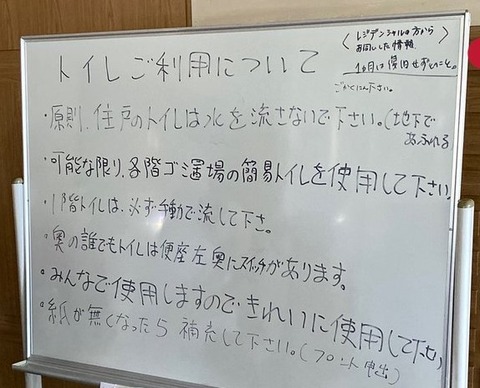 トイレご利用について
〈レジデンシャルの方から
お聞きした情報〉
1ヶ月は復旧せずとのこと。
ごかくにん下さい。
・原則、住戸のトイレは水を流さないで下さい。(地下で
あふれる)
・可能な限り、各階ゴミ置場の簡易トイレを使用して下さい。
・1階トイレは、必ず手動で流して下さ。
・奥の誰でもトイレは便座左奥にスイッチがあります。
・みんなで使用しますので、きれいに使用して下さい
・紙が無くなったら 補充して下さい。(フロント申出)